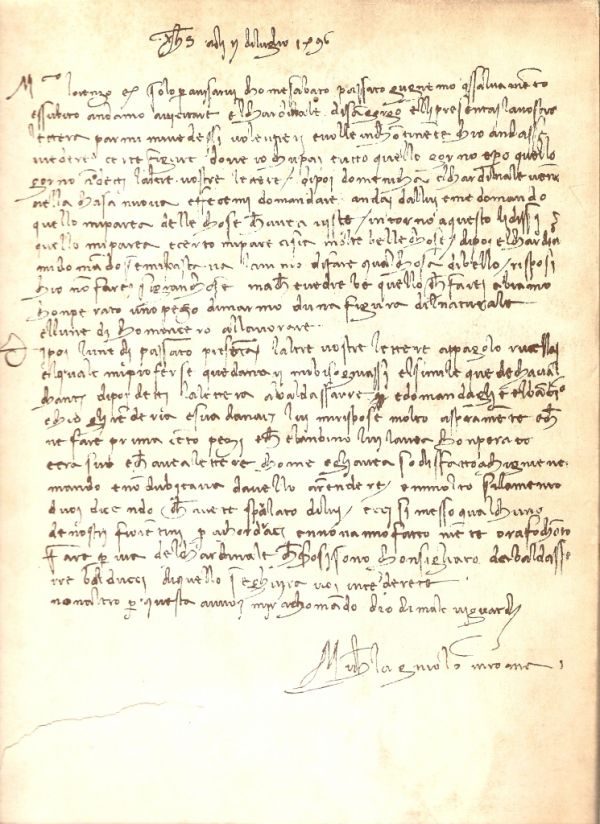 adi ii di luglio 1496
lorenzo ec solo per avisarvi chome sabato passato giugnemo assalvamento
essubito andamo avicitare el chardinale di san gorgo elli presentai la vostra
lettera parmi mi vedessi volentieri evolle inchontinente chio andassi
avedere certe figure dove io ochupai tutto quello gorno epero quello
gorno non detti laltre vostre lettere dipoi domenicha el chardinale venne
nella chasa nuova efecemi domandare andai dallui eme domando
quello miparea delle chose chavea viste intorno aquesto li dissi
quello miparea ecerto mipare cisia molte belle chose dipoi el chardinale
mi domando semi bastava lanimo difare qualchosa dibello risposi
chio non farei sigran chose mache evedrebe quello che farei abiamo
chonperato uno pezo dimarmo duna figura del naturale
ellunedi chomincero allavorare
dipoi lunedi passato presentai laltre vostre lettere appagolo rucellai
elquale miproferse que danari mi bisogniassi elsimile que de chaval
chanti dipoi detti la lettera abaldassarre edomandagli elbanbino
echio gli renderia esua danari lui mirispose molto aspramente e che
ne fare prima cento pezi eche elbanbino lui lavea chonperato
eera suo echavea lettere chome egli avea sodisfatto achigniene
mando enon dubitava davello arendere emmolto silamento
divoi dicendo che avete sparlato dilui ecci si messo qualchuno
denostri fiorentini per achordarci ennonanno fatto niente ora fo chonto
fare per via del chardinale che chosi sono chonsigliato da baldassa
rre balducci diquello seghuira voi intenderete
non altro per questa avvoi mi rachomando dio di male vi guardi
Michelagniolo in roma